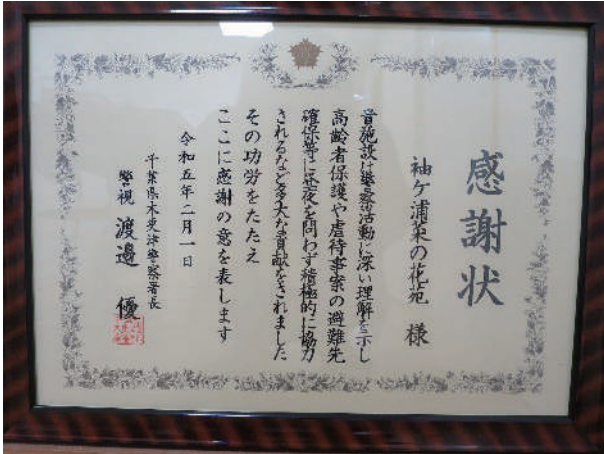 感謝状
袖ケ浦菜の花苑 様
貴施設は警察活動に深い理解を示し
高齢者保護や虐待事案の避難先
確保等に昼夜を問わず積極的に協力
されるなど多大な貢献をされました
その功労をたたえ
ここに感謝の意を表します
令和五年二月一日
千葉県木更津警察署長
警視 渡邉 優